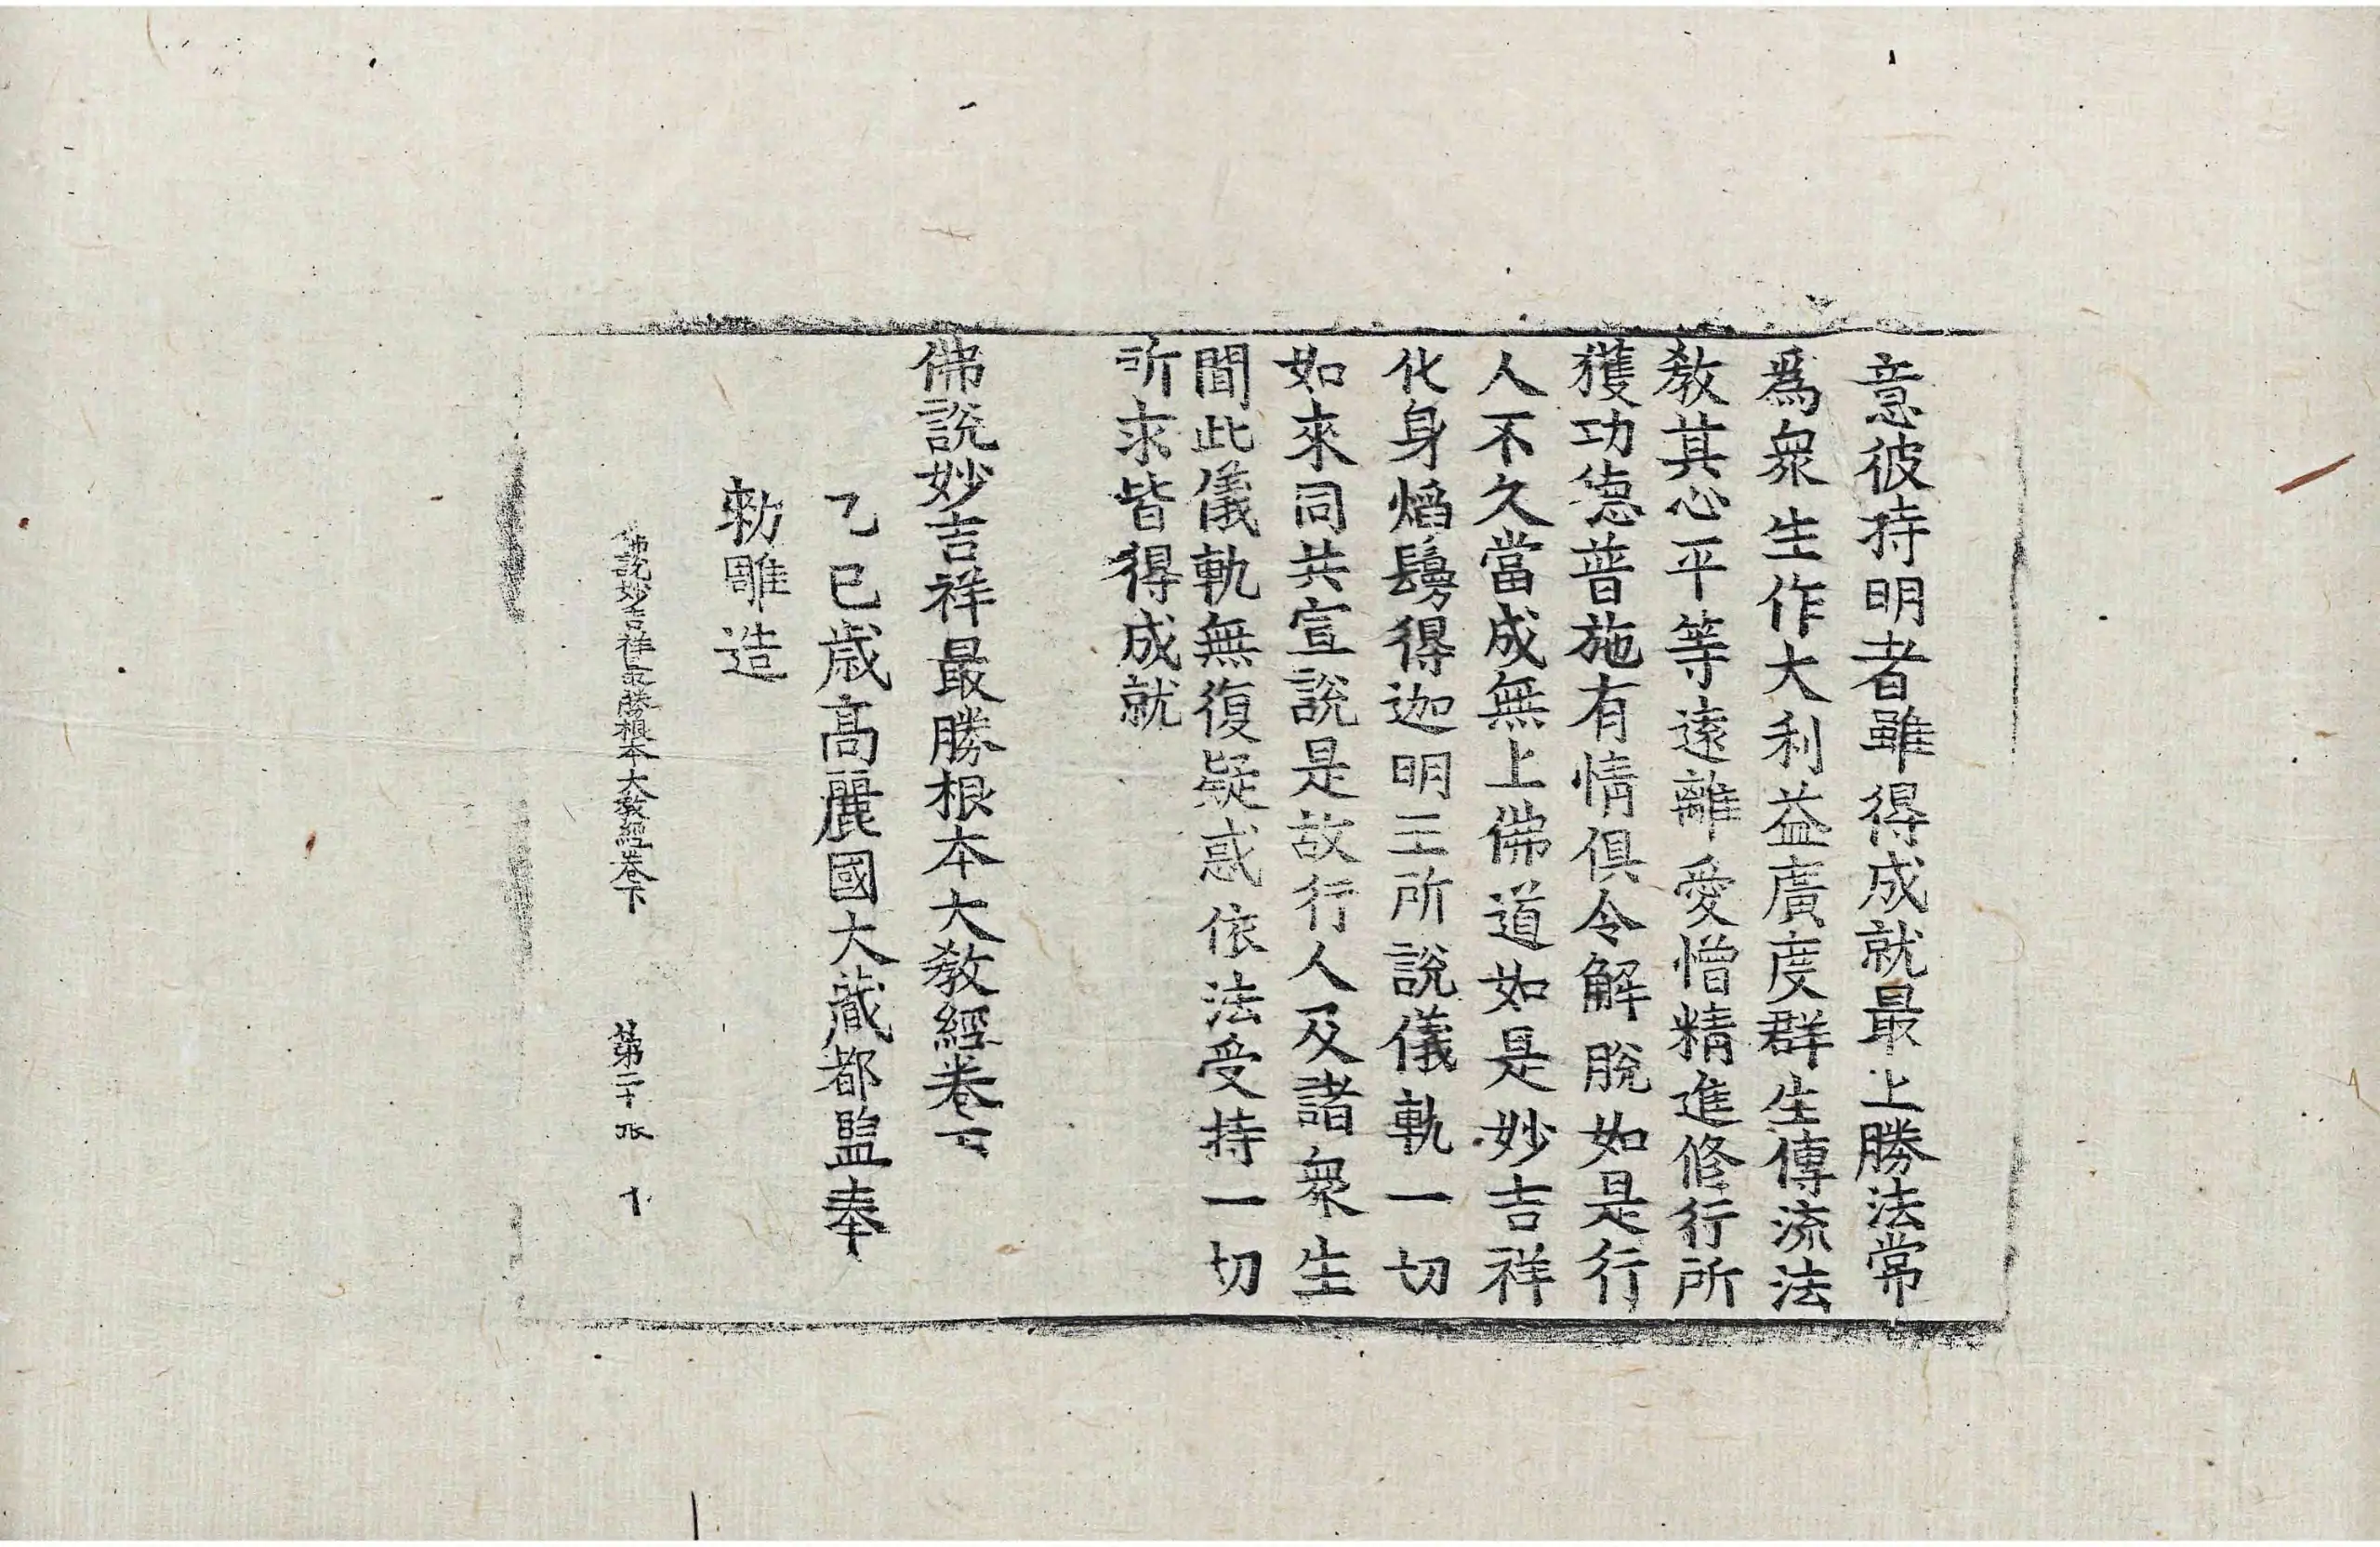 意彼持明者雖得成就最上勝法常
爲衆生作大利益廣度群生傳流法
教其心平等遠離愛憎精進修行所
獲功德普施有情俱令解脫如是行
人不久當成無上佛道如是妙吉祥
化身焰鬘得迦明王所說儀軌一切
如來同共宣說是故行人及諸衆生
聞此儀軌無復疑惑依法受持一切
所求皆得成就
佛說妙吉祥最勝根本大教經卷下
乙巳歲高麗國大藏都監奉
勅雕造
佛說妙吉祥最勝根本大教經卷下 第二十張 十